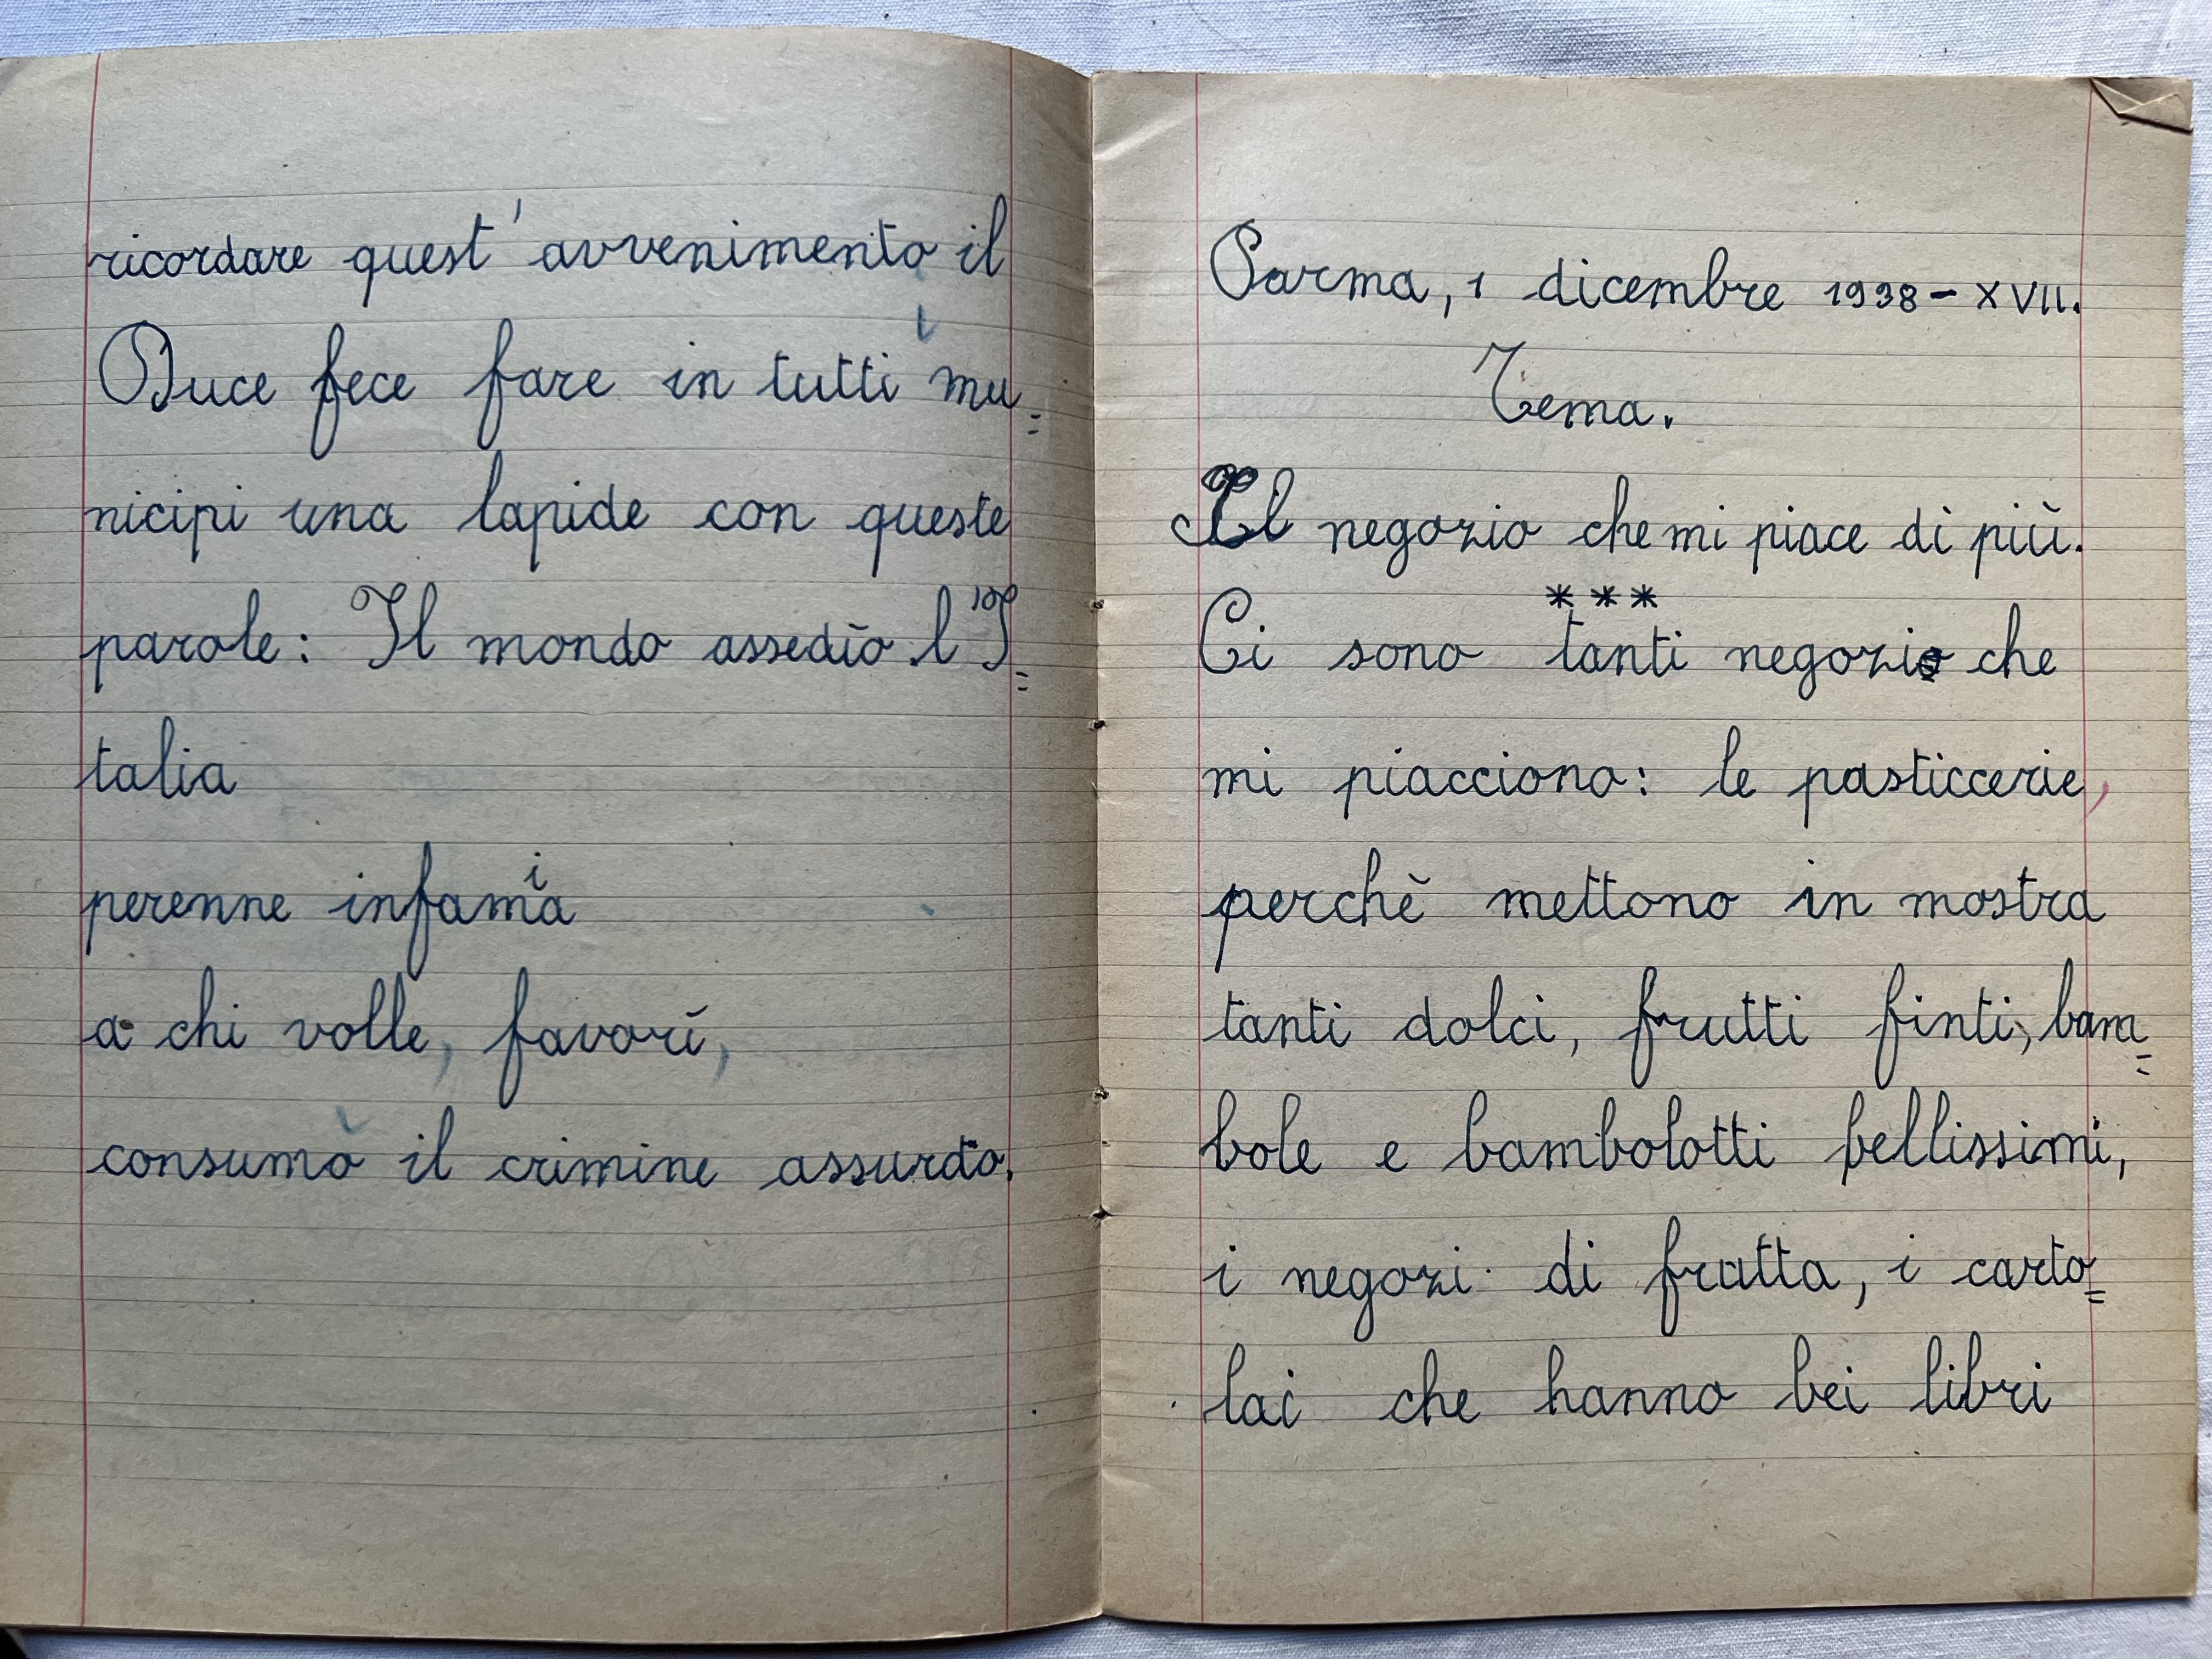 ricordare quest'avvenimento il
Duce fece fare in tutti i mu=
nicipi una lapide con queste
parole: Il mondo assediò l'I=
talia
perenne infamia
a chi volle, favorì,
consumò il crimine assurdo.
Parma, 1 dicembre 1938 - XVII.
Tema.
Il negozio che mi piace di più.
***
Ci sono tanti negozi che
mi piacciono: le pasticcerie,
perchè mettono in mostra
tanti dolci, frutti finti, bam=
bole e bambolotti bellissimi,
i negozi di frutta, i carto=
lai che hanno bei libri